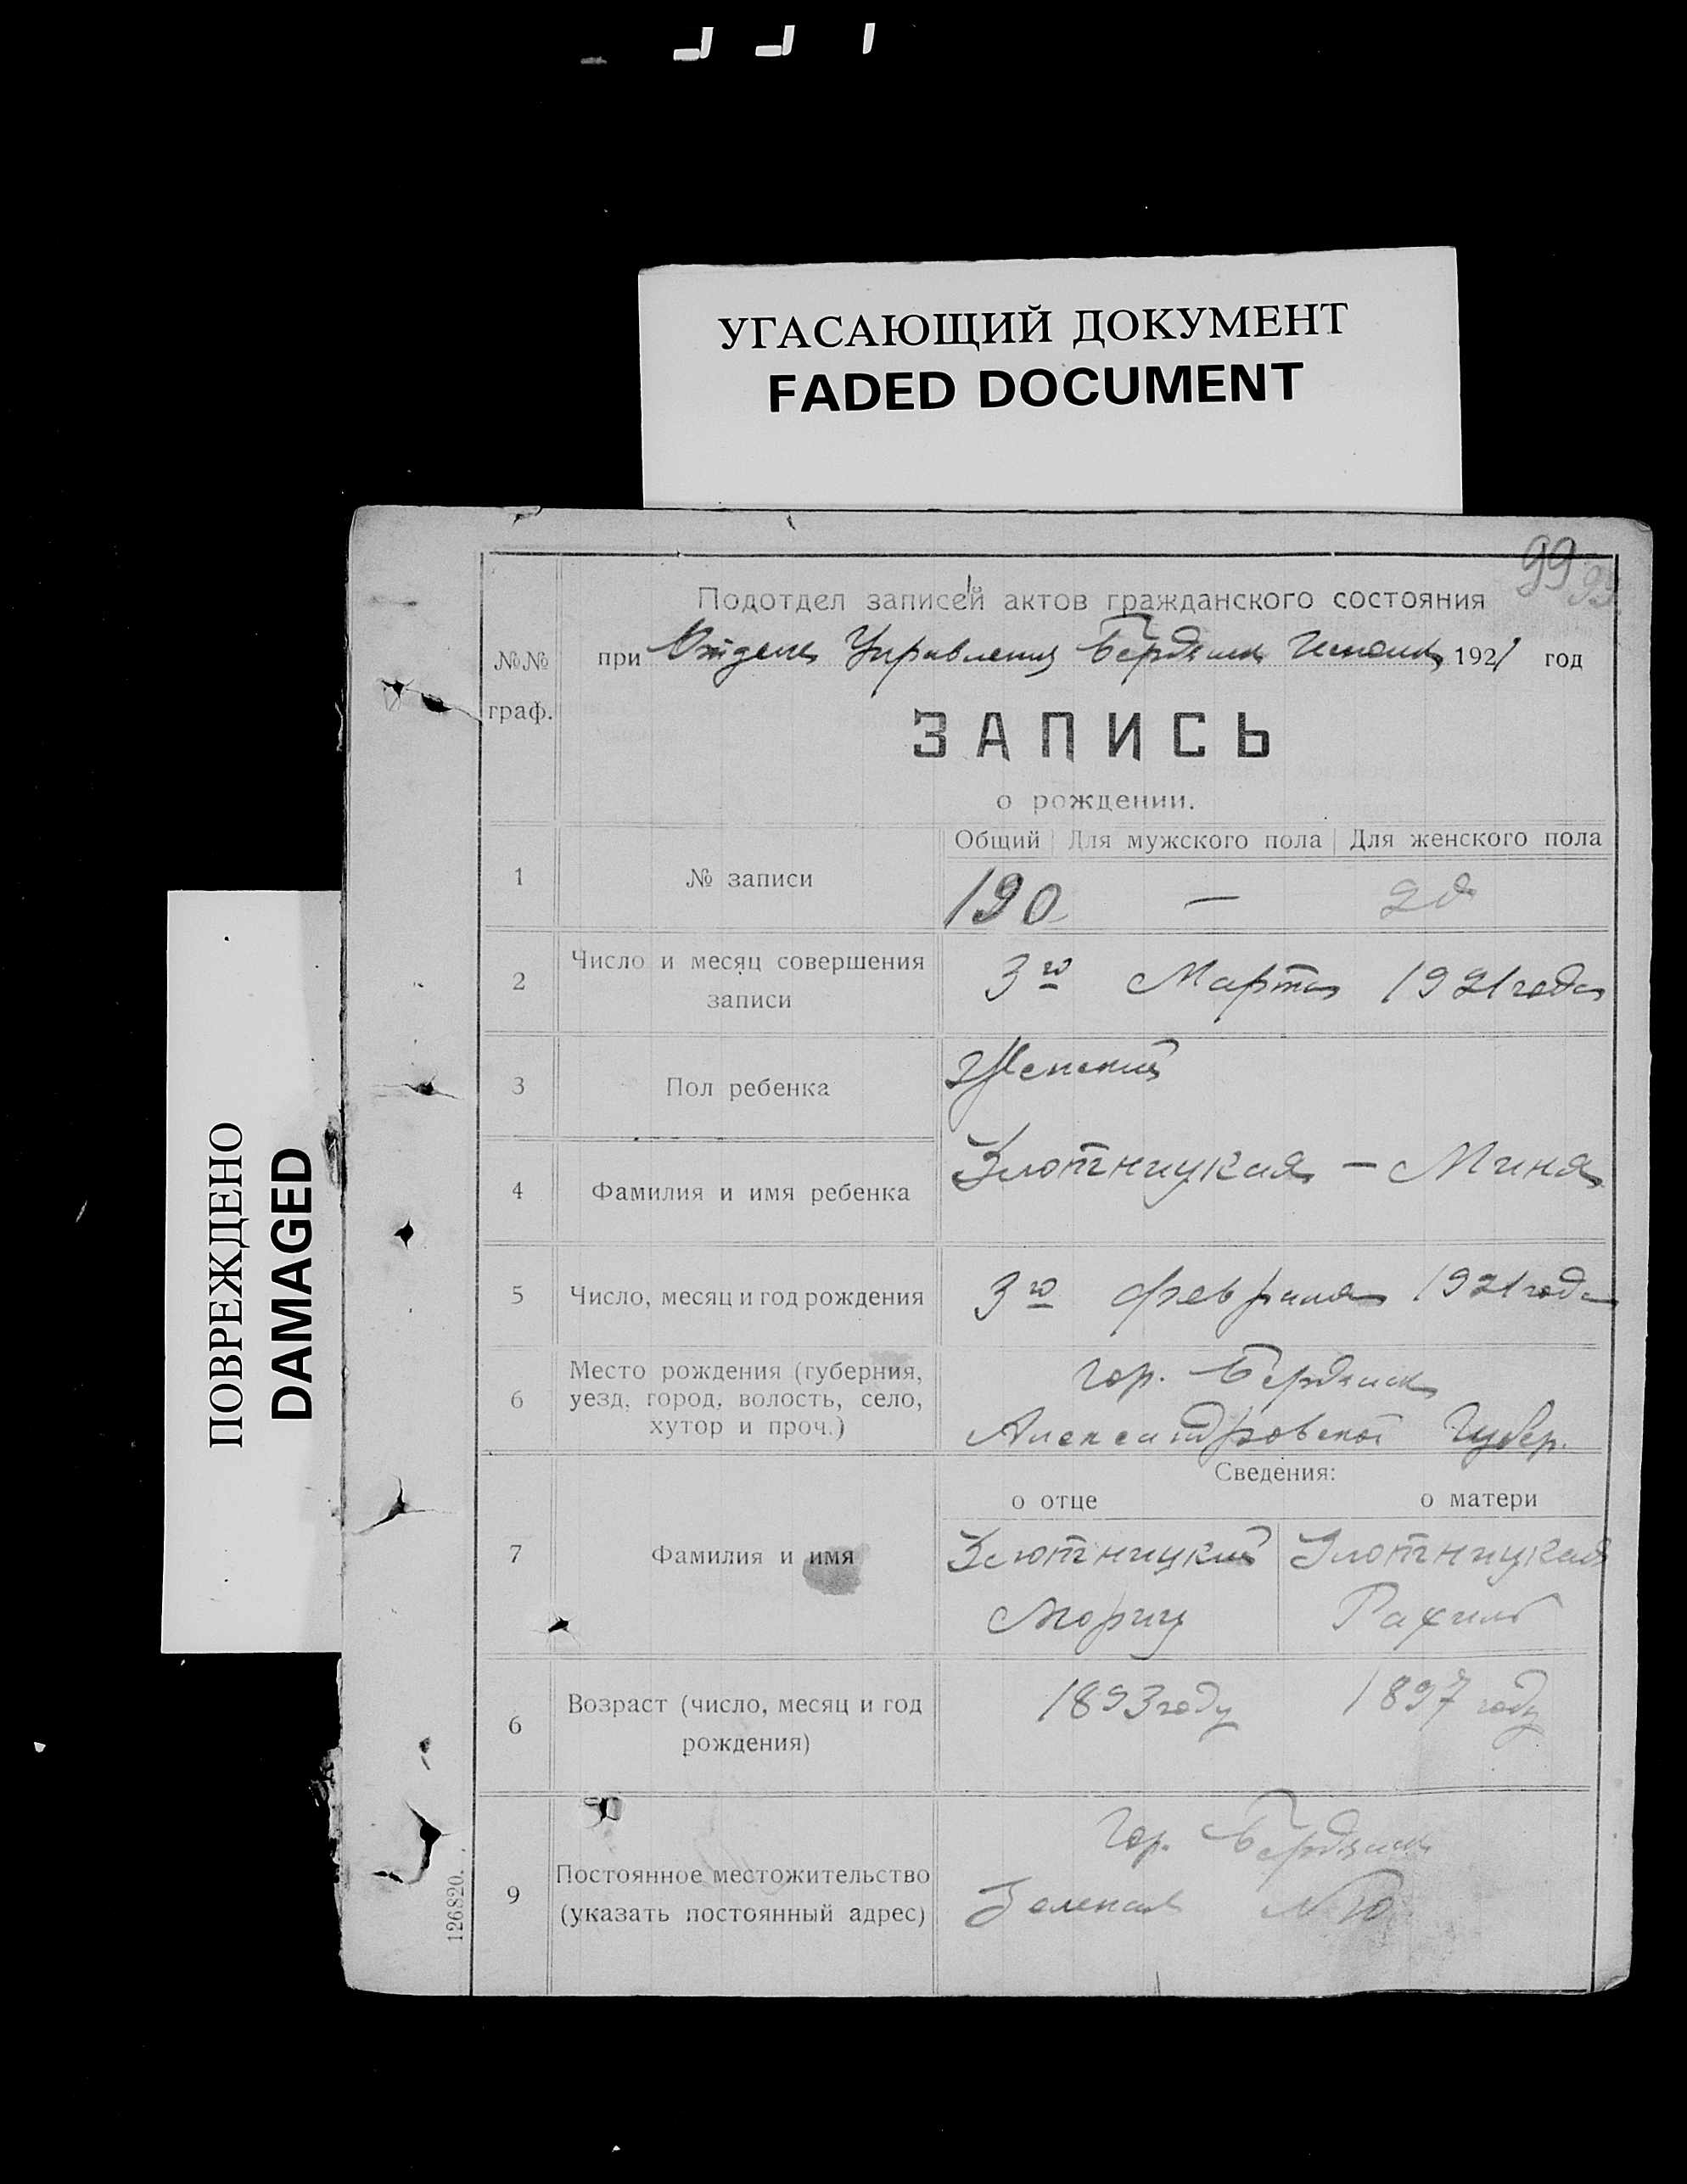 УГАСАЮЩИЙ ДОКУМЕНТ
FADED DOCUMENT
ПОВРЕЖДЕНО
DAMAGED
99
Подотдел записей актов гражданского состояния
№№ граф.
при Отделе Управления Бердянск 1921 год
ЗАПИСЬ
о рождении.
Общий Для мужского пола Для женского пола
1 № записи 190 —
2 Число и месяц совершения записи 3го Марта 1921 года
3 Пол ребенка Женский
4 Фамилия и имя ребенка Злотницкая — Миня
5 Число, месяц и год рождения 3го февраля 1921 года
6 Место рождения (губерния, уезд, город, волость, село, хутор и проч.) гор. Бердянск
Александровской Губер.
Сведения:
о отце о матери
7 Фамилия и имя Злотницкий Злотницкая
Мориц Рахиль
6 Возраст (число, месяц и год рождения) 1893 году 1897 году
9 Постоянное местожительство (указать постоянный адрес) Гор. Бердянск
Зеленая №10
126820.